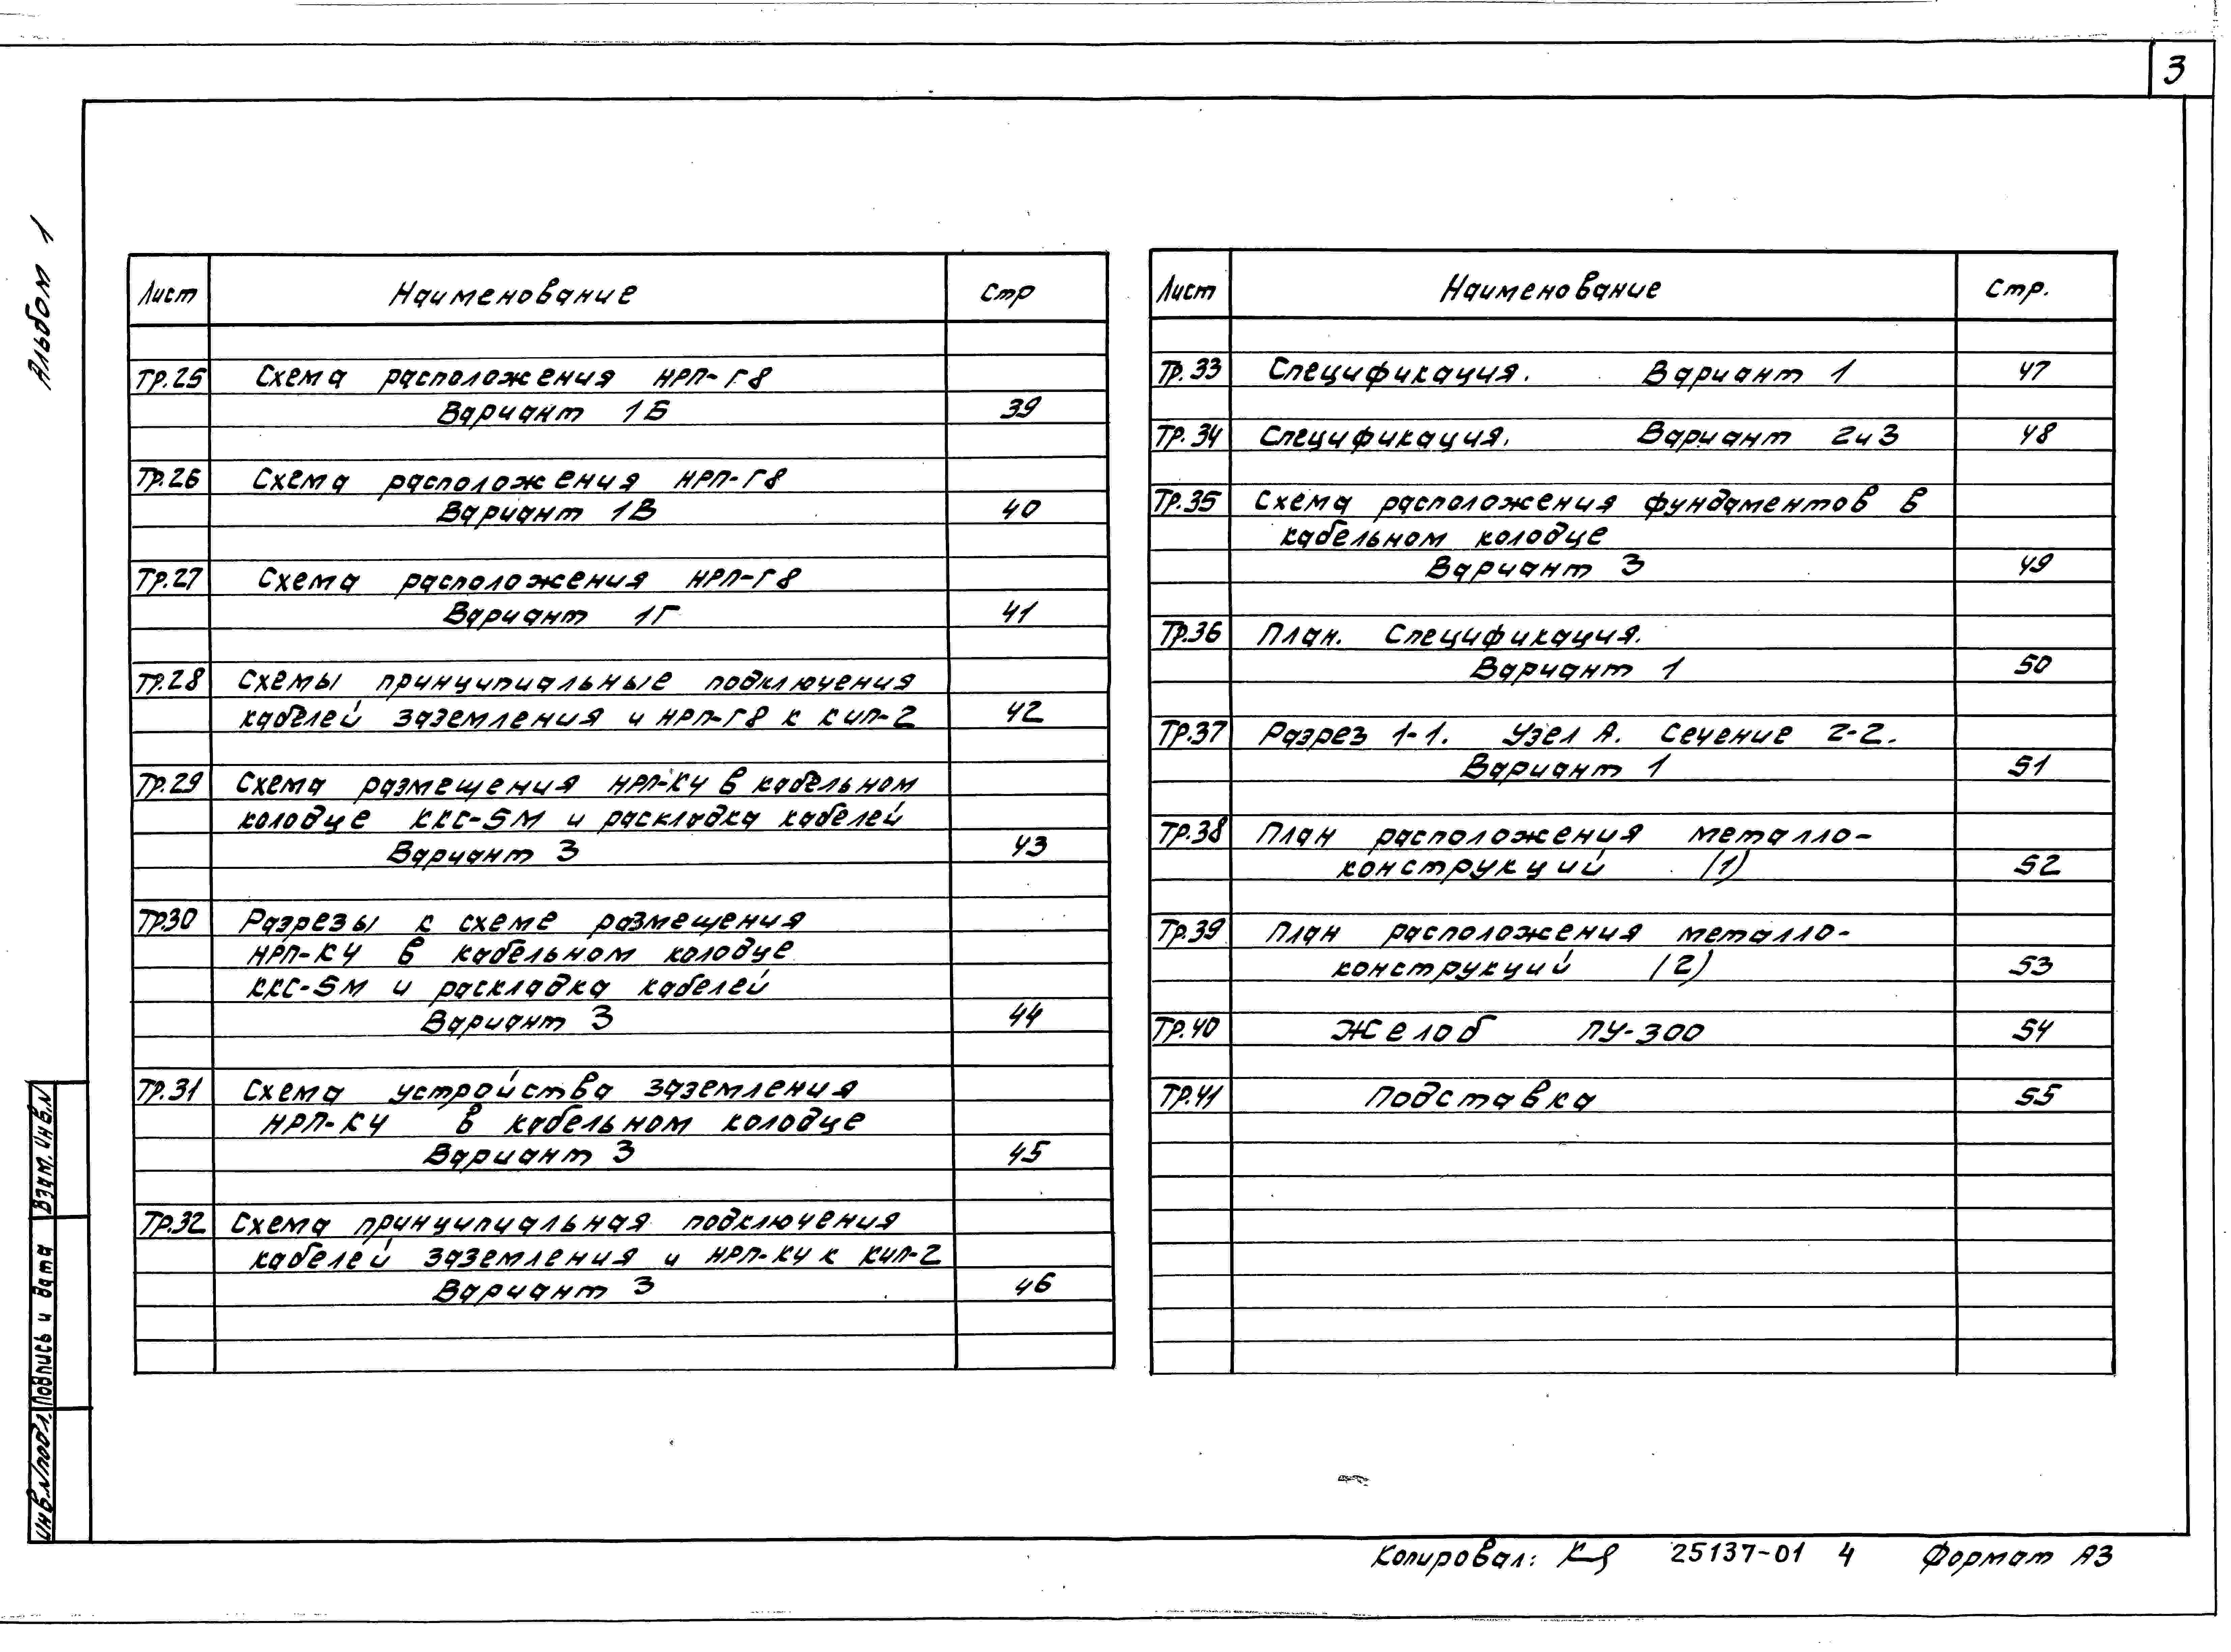 3
Альбом 1
Лист Наименование Стр
ТР.25 Схема расположения НРП-Г8
Вариант 1Б 39
ТР.26 Схема расположения НРП-Г8
Вариант 1В 40
ТР.27 Схема расположения НРП-Г8
Вариант 1Г 41
ТР.28 Схемы принципиальные подключения
кабелей заземления и НРП-Г8 к КИП-2 42
ТР.29 Схема размещения НРП-К4 в кабельном
колодце ККС-5М и раскладка кабелей
Вариант 3 43
ТР.30 Разрезы к схеме размещения
НРП-К4 в кабельном колодце
ККС-5М и раскладка кабелей
Вариант 3 44
ТР.31 Схема устройства заземления
НРП-К4 в кабельном колодце
Вариант 3 45
ТР.32 Схема принципиальная подключения
кабелей заземления и НРП-К4 к КИП-2
Вариант 3 46
Лист Наименование Стр.
ТР.33 Спецификация. Вариант 1 47
ТР.34 Спецификация. Вариант 2и3 48
ТР.35 Схема расположения фундаментов в
кабельном колодце
Вариант 3 49
ТР.36 План. Спецификация.
Вариант 1 50
ТР.37 Разрез 1-1. Узел А. Сечение 2-2.
Вариант 1 51
ТР.38 План расположения металло-
конструкций (1) 52
ТР.39 План расположения металло-
конструкций (2) 53
ТР.40 Желоб ПУ-300 54
ТР.41 Подставка 55
Взам. инв.N
Подпись и дата
Инв.N подл.
Копировал: 25137-01 4 Формат А3